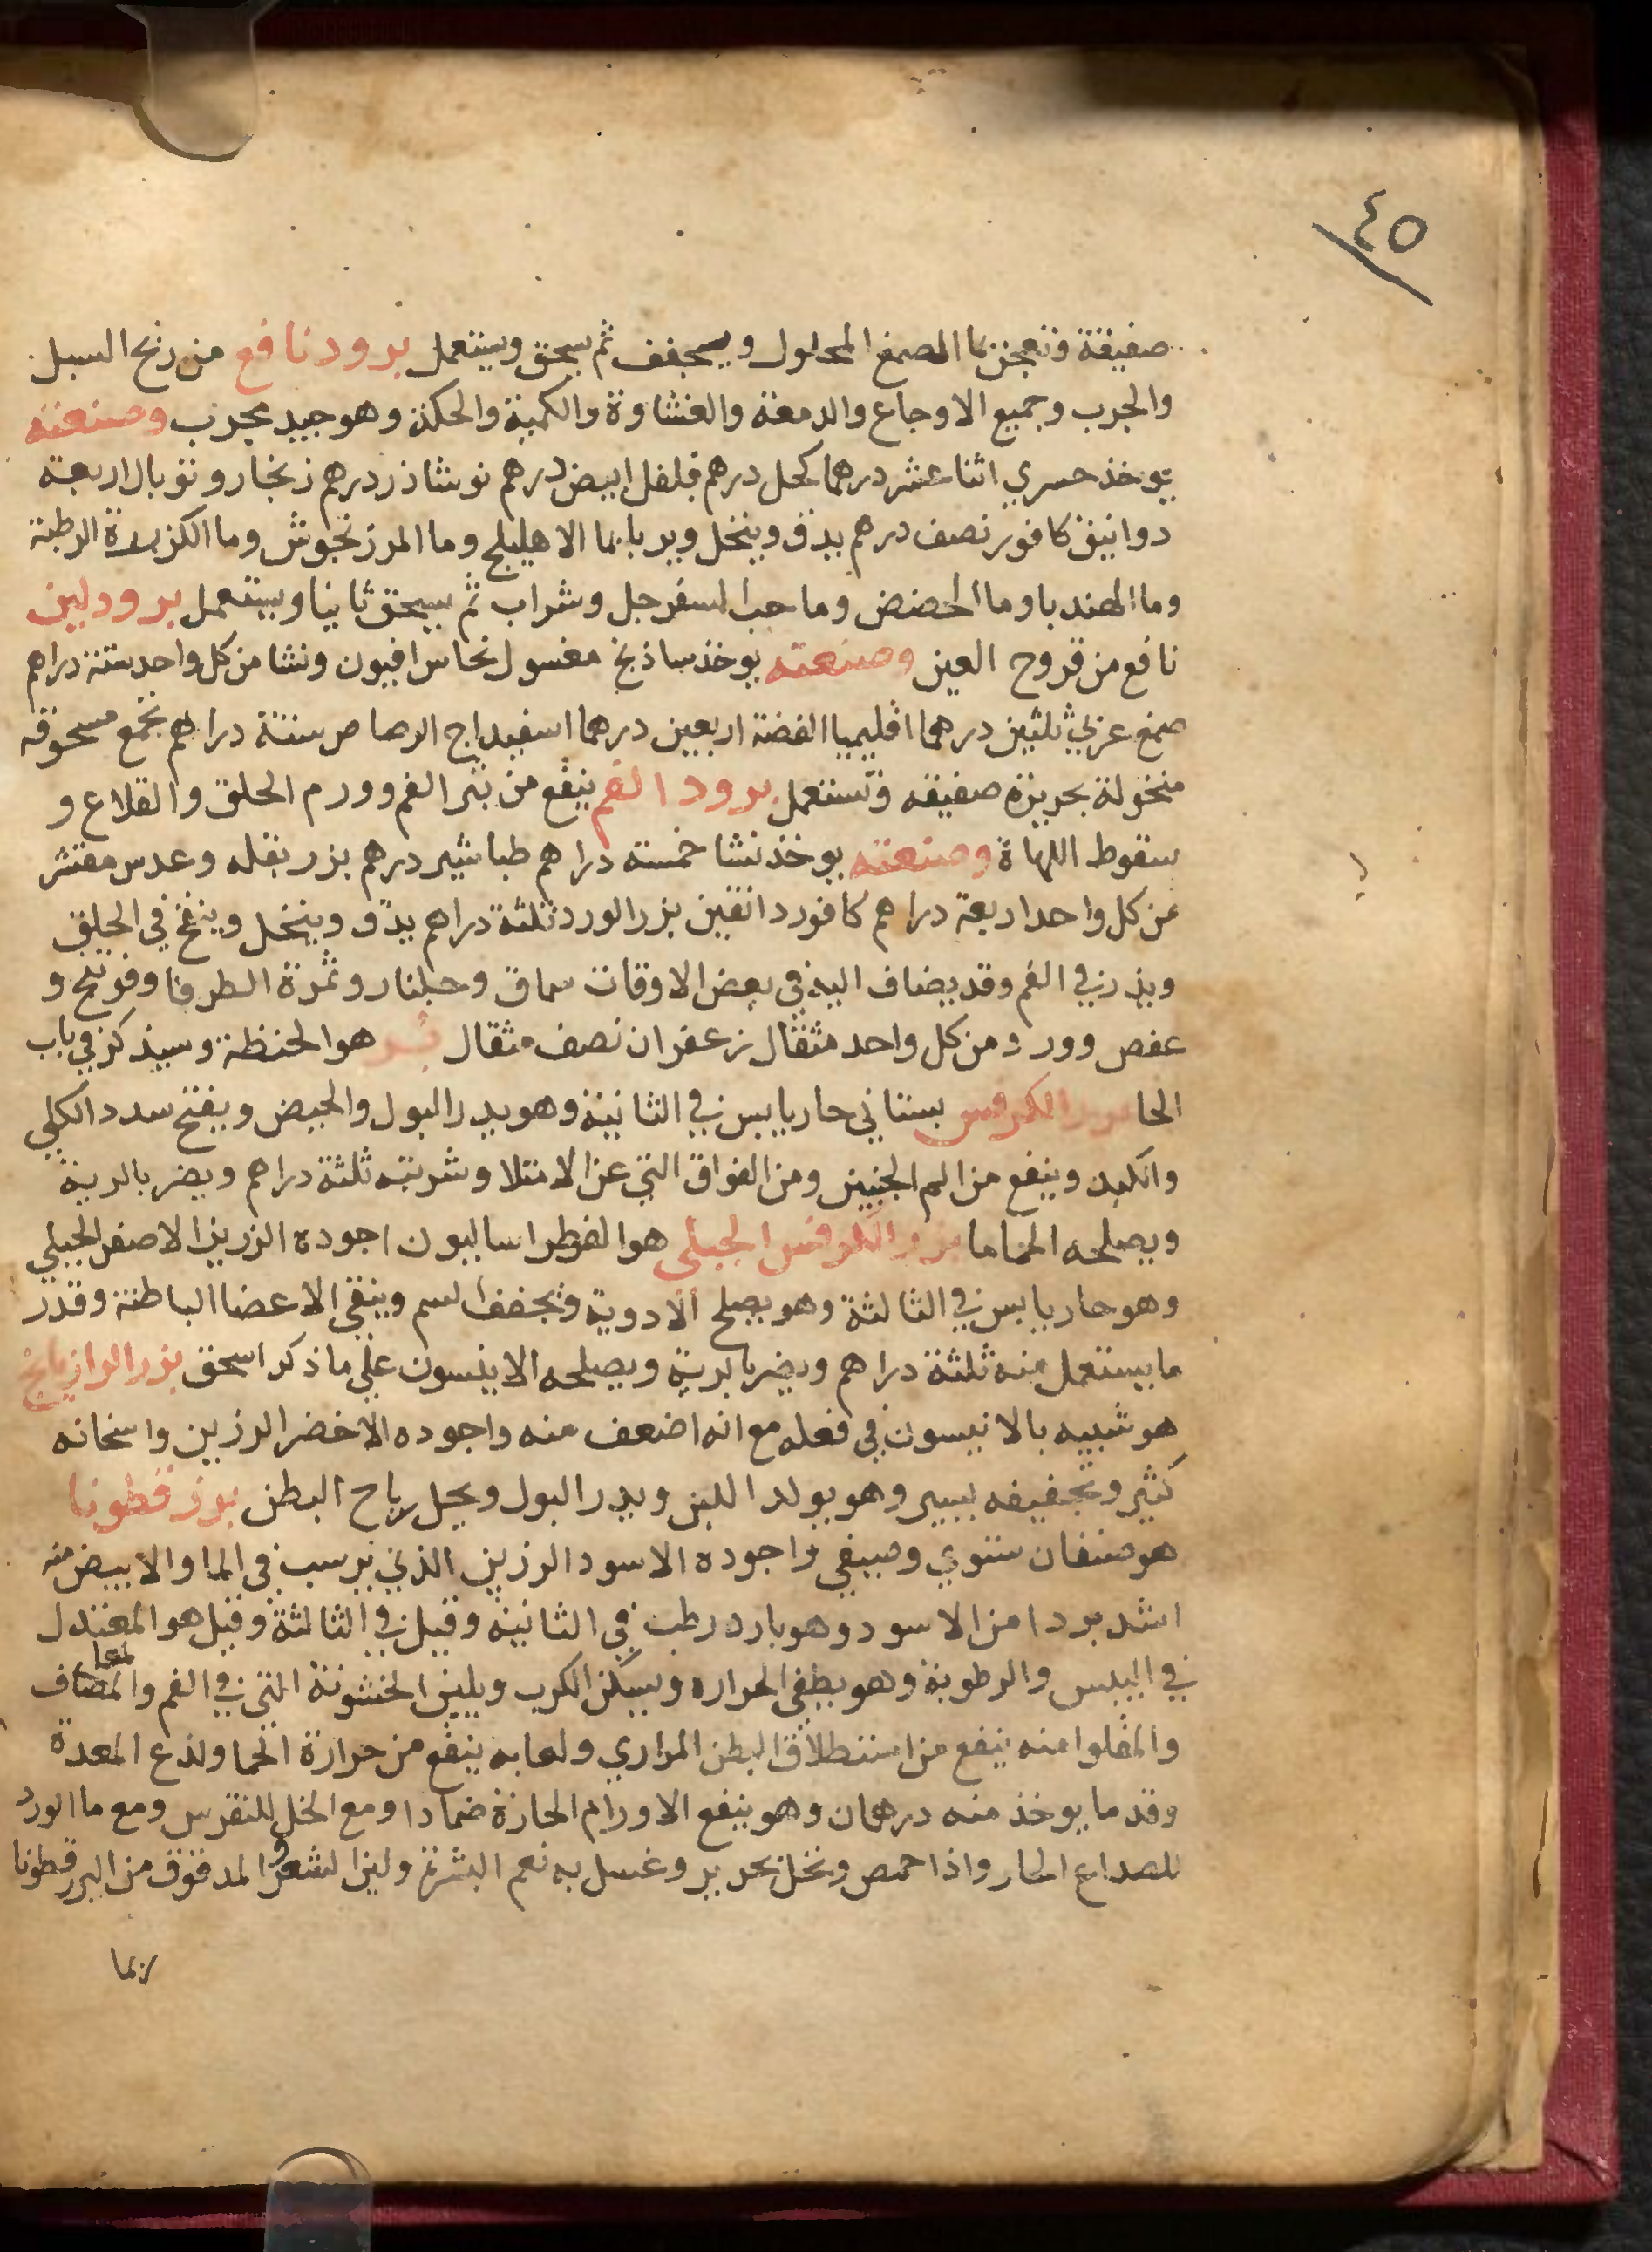 ٤٥
صفيقة وتعجن بما الصمغ المحلول ويجفف ثم يسحق ويستعمل برود نافع من ريح السبل
والجرب وجميع الاوجاع والدمعة والغشاوة والكمنة والحكة وهو جيد مجرب وصنعته
يوخذ حسري اثنا عشر درهما كحل درهم فلفل ابيض درهم نوشاذر درهم زنجار وتوبال اربعة
دوانيق كافور نصف درهم يدق وينخل ويربا بما الاهليلج وما المرزنجوش وما الكزبرة الرطبة
وما الهندبا وما الحضض وما حب السفرجل وشراب ثم يسحق ثانيا ويستعمل برود لين
نافع من قروح العين وصنعته يوخذ ساذنج مغسول نحاس افيون ونشا من كل واحد ستة دراهم
صمغ عربي ثلثين درهما اقليميا الفضة اربعين درهما اسفيداج الرصاص ستة دراهم تجمع مسحوقه
منخولة بحريرة صفيقه وتستعمل برود الفم ينفع من بثر الفم وورم الحلق والقلاع و
سقوط اللهاة وصنعته يوخذ نشا خمسة دراهم طباشير درهم بزر بقله وعدس مقشر
من كل واحد اربعة دراهم كافور دانقين بزر الورد ثلثة دراهم يدق وينخل وينفخ في الحلق
ويذر في الفم وقد يضاف اليه في بعض الاوقات سماق وجلنار وثمرة الطرفا وفوتنج و
عفص وورد ومن كل واحد مثقال زعفران نصف مثقال بر هو الحنظة وسيذكر في باب
الحا بزر الكرفس بستاني حار يابس في الثانية وهو يدر البول والحيض ويفتح سدد الكلي
والكبد وينفع من الم الجنبين ومن الفواق التي عن الامتلا وشربته ثلثة دراهم ويضر بالرية
ويصلحه الحماما بزر الكرفس الجبلي هو الفطراساليون اجوده الزرين الاصفر الجبلي
وهو حار يابس في الثالثة وهو يصلح الادوية ويجفف السم وينقي الاعضا الباطنة وقدر
ما يستعمل منه ثلثة دراهم ويضر بالرية ويصلحه الانيسون علي ما ذكر اسحق بزر الرازيانج
هو شبيه بالانيسون في فعله مع انه اضعف منه واجوده الاخضر الرزين واسخانه
كثير وتجفيفه يسير وهو يولد اللبن ويدر البول ويحل رياح البطن بزر قطونا
هو صنفان شتوي وصيفي واجوده الاسود الرزين الذي يرسب في الما والابيض منه
اشد بردا من الاسود وهو بارد رطب في الثانية وقيل في الثالثة وقيل هو المعتدل
في اليبس والرطوبة وهو يطفي الحراره ويسكن الكرب ويلين الخشونة التي في الفم والمضاف
والمقلوا منه ينفع من استطلاق البطن المراري ولعابه ينفع من حرارة الحما ولذع المعدة
وقد ما يوخذ منه درهمان وهو ينفع الاورام الحارة ضمادا ومع الخل للنقرس ومع ما الورد
للصداع الحار واذا حمص ونخل بحرير وغسل به نعم البشرة ولين الشعر والمدقوق من البزر قطونا
ربما